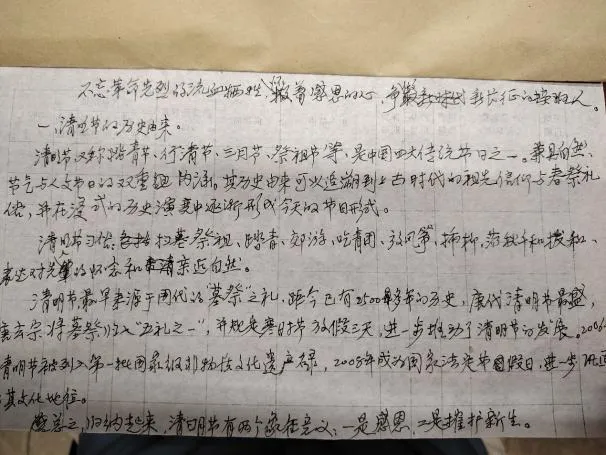 不忘革命先烈的流血牺牲,怀着感恩的心,争做新时代新长征的接班人
一、清明节的历史由来。
清明节又称踏青节、行清节、三月节、祭祖节等,是中国四大传统节日之一。兼具自然
节气与人文节日的双重内涵。其历史由来可以追溯到上古时代的祖先信仰与春祭礼
俗,并在漫式的历史演变中逐渐形成今天的节日形式。
清明节习俗包括扫墓祭祖、踏青、郊游、吃青团、放风筝、插柳、荡秋千和拔和、
表达对先辈的怀念和亲近自然。
清明节最早来源于周代的“墓祭”之礼,距今已有2500多年的历史,唐代清明节最盛,
唐玄宗将墓祭归入“五礼之一”,并规定寒食节放假三天,进一步推动了清明节的发展。2006
清明节被列入第一批国家级非物质文化遗产名录,2008年成为国家法定节假日,进一步巩固
其文化地位。
总之,归纳起来,清明节有两个象征意义:一是感恩,二是维护新生。